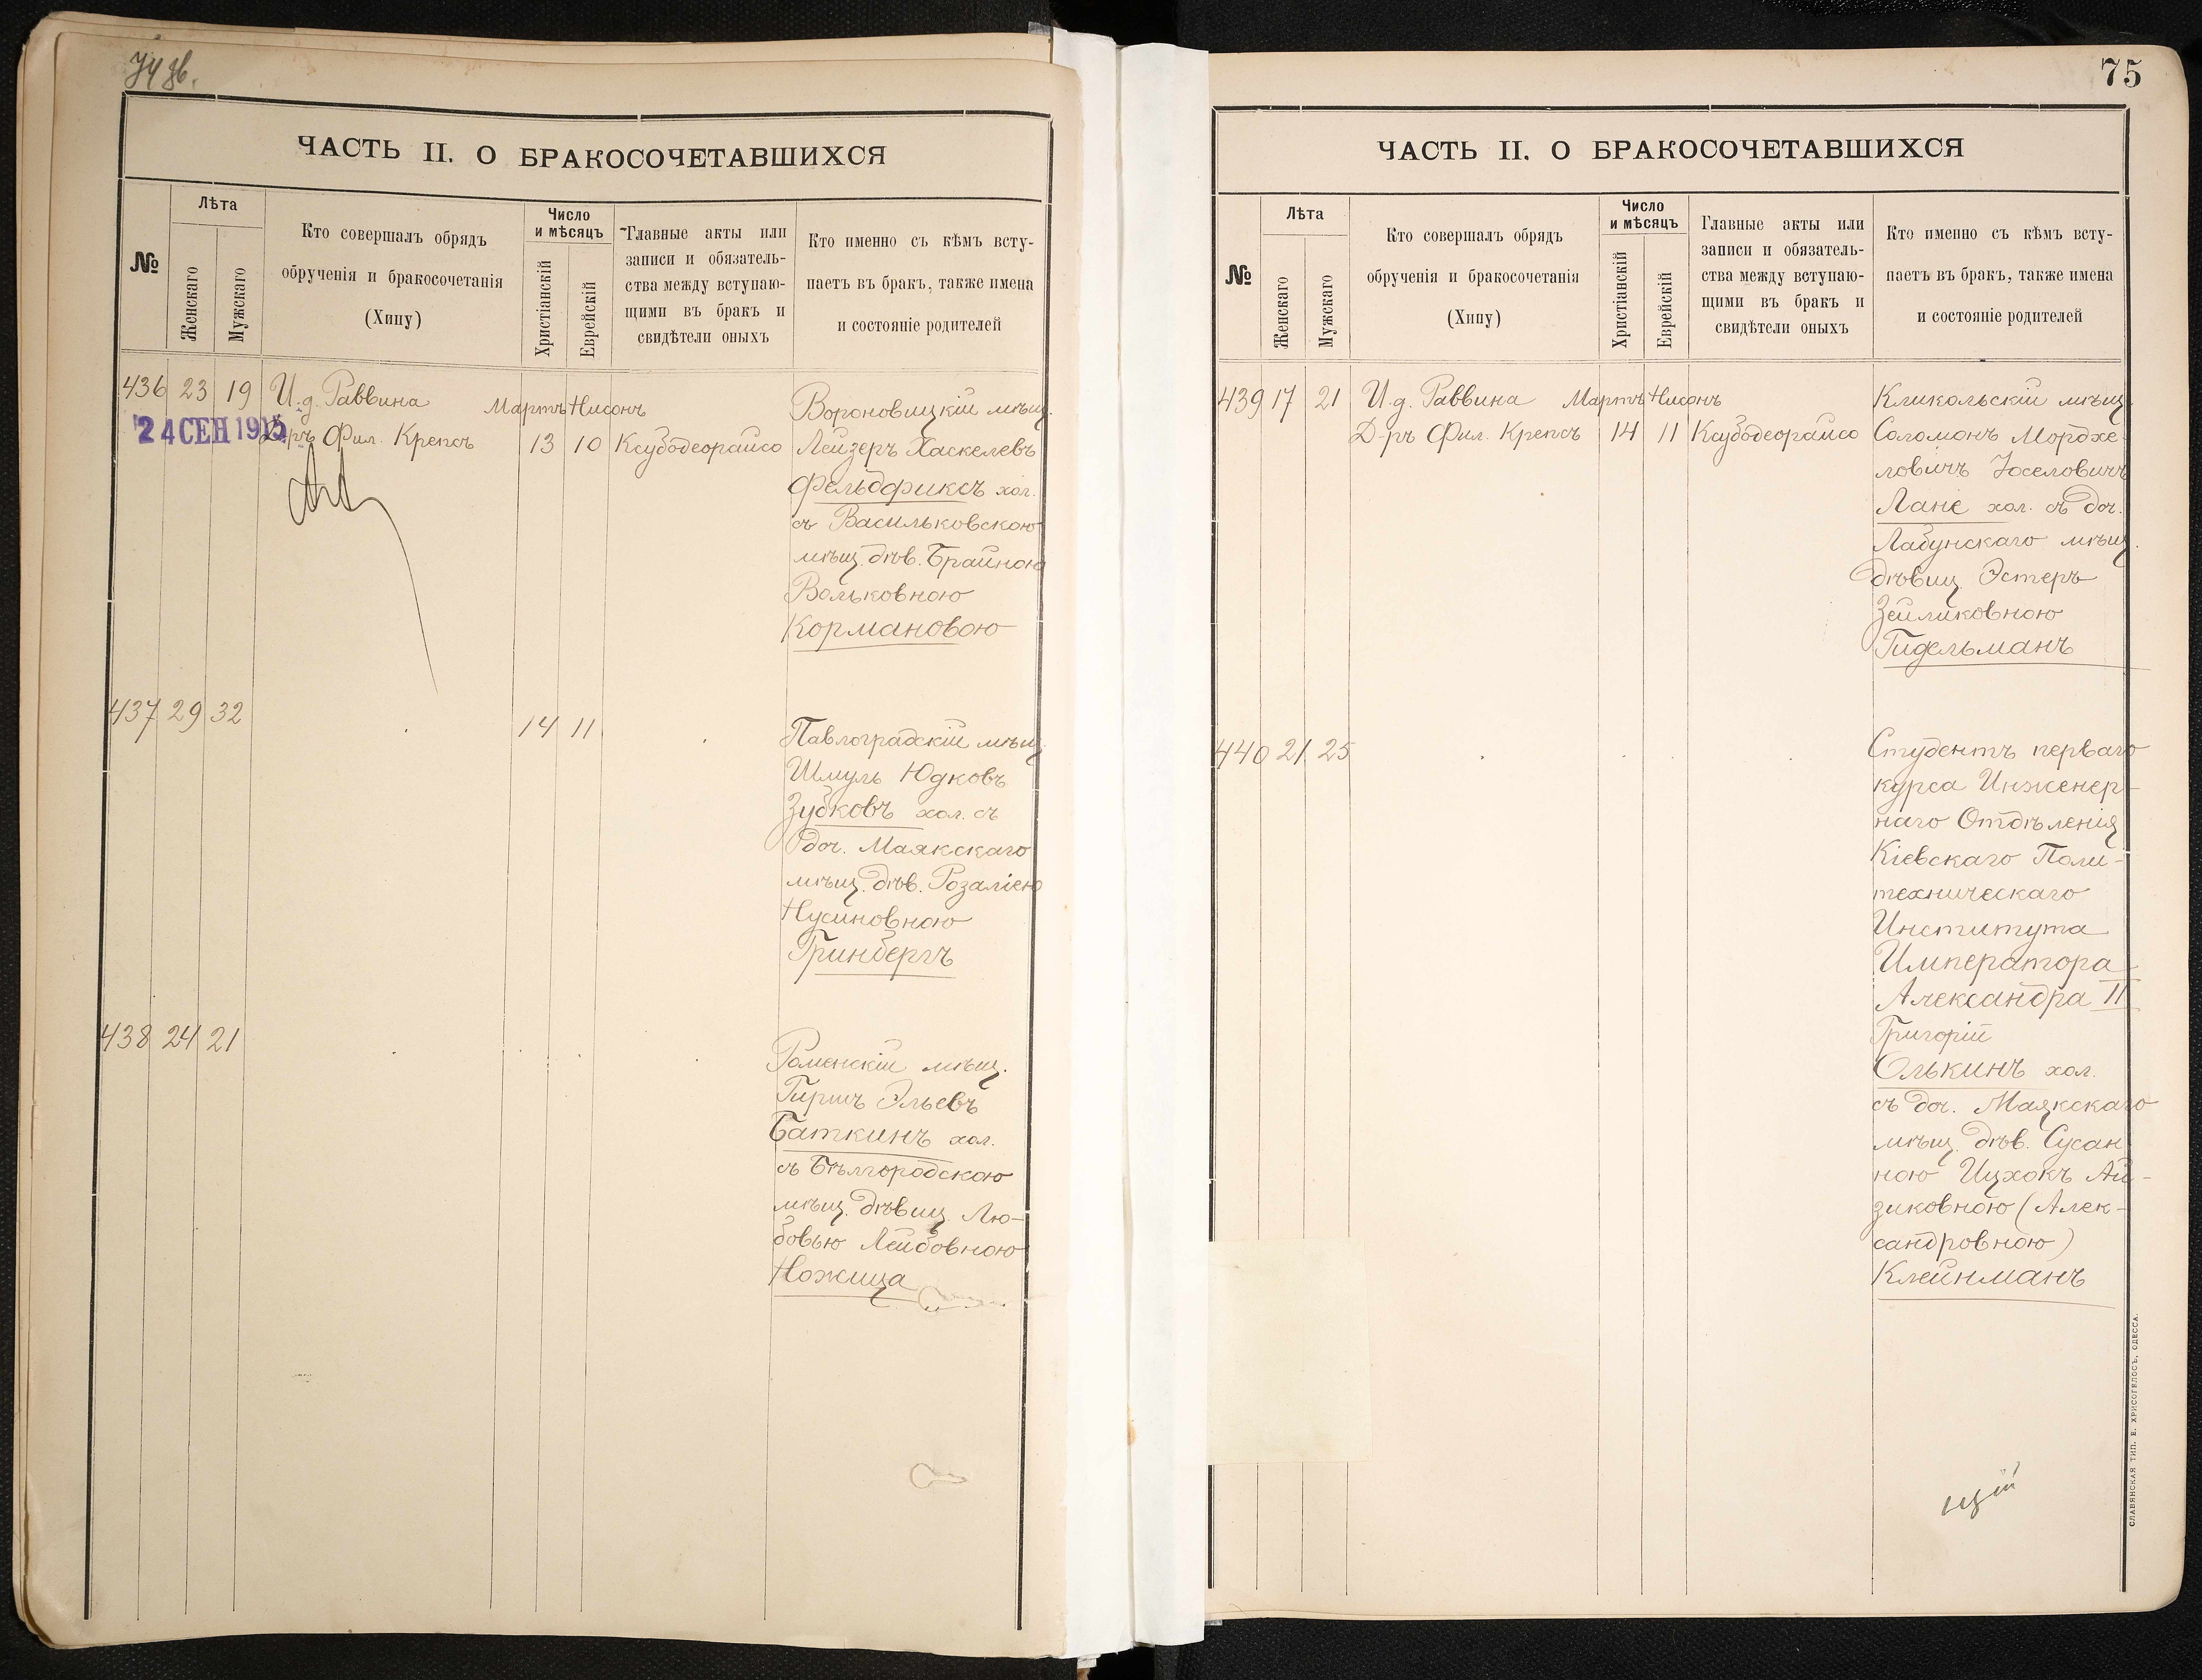 74 об.
ЧАСТЬ II. О БРАКОСОЧЕТАВШИХСЯ
№
Лѣта
Женскаго
Мужскаго
Кто совершалъ обрядъ
обрученія и бракосочетанія
(Хипу)
Число
и мѣсяцъ
Христіанскій
Еврейскій
Главные акты или
записи и обязатель-
ства между вступаю-
щими въ бракъ и
свидѣтели оныхъ
Кто именно съ кѣмъ всту-
паетъ въ бракъ, также имена
и состояніе родителей
436 23 19 И.д. Раввина
24 СЕН 1915
Д-ръ Фил. Крепсъ
Мартъ Нисонъ
13 10 Ксубодеорайсо
Вороновицкій мѣщ.
Лейзеръ Хаскелевъ
Фельдфиксъ хол.
съ Васильковскою
мѣщ. дѣв. Брайною
Вольковною
Кормановою
437 29 32
14 11
Павлоградскій мѣщ.
Шмуль Юдковъ
Зубковъ хол. съ
доч. Маякскаго
мѣщ. дѣв. Розаліею
Нусиновною
Гринбергъ
438 24 21
Роменскій мѣщ.
Гиршъ Эльевъ
Баткинъ хол.
съ Бѣлгородскою
мѣщ. дѣвиц. Лю-
бовью Лейбовною
Ножица
75
ЧАСТЬ II. О БРАКОСОЧЕТАВШИХСЯ
№
Лѣта
Женскаго
Мужскаго
Кто совершалъ обрядъ
обрученія и бракосочетанія
(Хипу)
Число
и мѣсяцъ
Христіанскій
Еврейскій
Главные акты или
записи и обязатель-
ства между вступаю-
щими въ бракъ и
свидѣтели оныхъ
Кто именно съ кѣмъ всту-
паетъ въ бракъ, также имена
и состояніе родителей
439 17 21 И.д. Раввина
Д-ръ Фил. Крепсъ
Мартъ Нисонъ
14 11 Ксубодеорайсо
Кликольскій мѣщ.
Соломонъ Мордхе-
ловичъ Іоселовичъ
Лане хол. съ доч.
Лабунскаго мѣщ.
дѣвиц. Эстеръ
Зейликовною
Гидельманъ
440 21 25
Студентъ перваго
курса Инженер-
наго Отдѣленія
Кіевскаго Поли-
техническаго
Института
Императора
Александра II
Григорій
Олькинъ хол.
съ доч. Маякскаго
мѣщ. дѣв. Сусан-
ною Ицхокъ Ай-
зиковною (Алек-
сандровною)
Клейнманъ
СЛАВЯНСКАЯ ТИП. Е. ХРИСОГЕЛОСЪ, ОДЕССА.